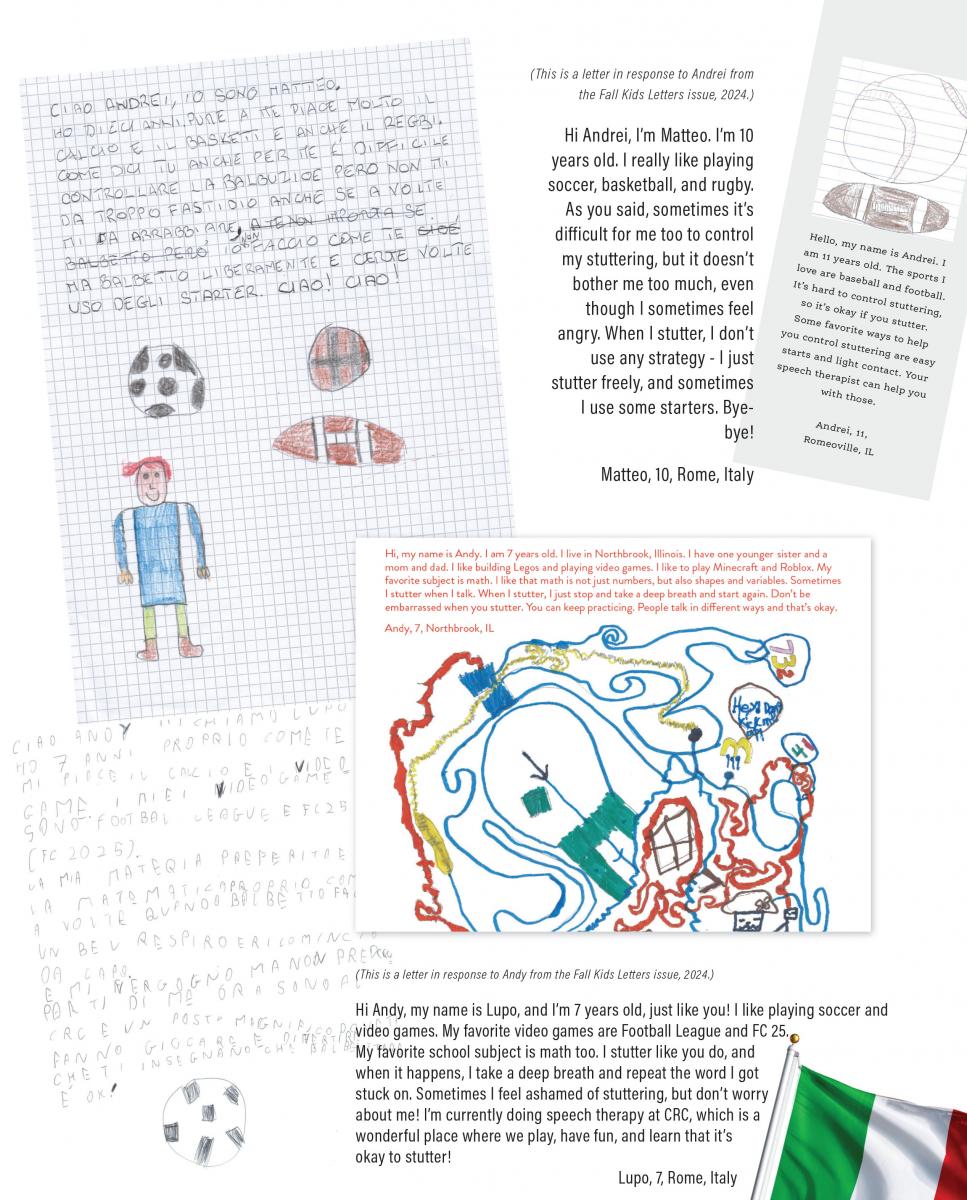 CIAO ANDREI, IO SONO MATTEO.
HO DIECI ANNI. PURE A ME PIACE MOLTO IL
CALCIO E IL BASKET! E ANCHE IL REGBI.
COME DICI TU ANCHE PER ME È DIFFICILE
CONTROLLARE LA BALBUZIOE PERO NON MI
DA TROPPO FASTIDIO ANCHE SE A VOLTE
MI FA ARRABBIARE, A ME NON IMPORTA SE
BALBETTO PERO IO NON FACCIO COME TE CIOÈ
MA BALBETTO LIBERAMENTE E CERTE VOLTE
USO DEGLI STARTER. CIAO! CIAO!
(This is a letter in response to Andrei from
the Fall Kids Letters issue, 2024.)
Hi Andrei, I'm Matteo. I'm 10
years old. I really like playing
soccer, basketball, and rugby.
As you said, sometimes it's
difficult for me too to control
my stuttering, but it doesn't
bother me too much, even
though I sometimes feel
angry. When I stutter, I don't
use any strategy - I just
stutter freely, and sometimes
I use some starters. Bye-
bye!
Matteo, 10, Rome, Italy
Hello, my name is Andrei. I
am 11 years old. The sports I
love are baseball and football.
It's hard to control stuttering,
so it's okay if you stutter.
Some favorite ways to help
you control stuttering are easy
starts and light contact. Your
speech therapist can help you
with those.
Andrei, 11,
Romeoville, IL
Hi, my name is Andy. I am 7 years old. I live in Northbrook, Illinois. I have one younger sister and a
mom and dad. I like building Legos and playing video games. I like to play Minecraft and Roblox. My
favorite subject is math. I like that math is not just numbers, but also shapes and variables. Sometimes
I stutter when I talk. When I stutter, I just stop and take a deep breath and start again. Don't be
embarrassed when you stutter. You can keep practicing. People talk in different ways and that's okay.
Andy, 7, Northbrook, IL
CIAO ANDY MI CHIAMO LUPO
HO 7 ANNI PROPRIO COME TE
MI PIACE IL CALCIO E I VIDEO
GAME. I MIEI VIDEOGAME
SONO FOOTBAL LEAGUE E FC25
(FC 2025).
LA MIA MATEQIA PREFERITA E
LA MATOMATICA PROPRIO COM
A VOLTE QUANDO BALBETTO FA
UN BEL RESPIRO E RICOMINC
DA CAPO.
E MI VERGOGNO MA NON PREOC
PAR TI DI ME ORA SONO AL
CRC E UN POSTO MAGNIFICO
FANNO GIOCARE E DIVERTIRE
CHE TI INSEGNANO CHE BALBETTARE
È OK!
(This is a letter in response to Andy from the Fall Kids Letters issue, 2024.)
Hi Andy, my name is Lupo, and I'm 7 years old, just like you! I like playing soccer and
video games. My favorite video games are Football League and FC 25.
My favorite school subject is math too. I stutter like you do, and
when it happens, I take a deep breath and repeat the word I got
stuck on. Sometimes I feel ashamed of stuttering, but don't worry
about me! I'm currently doing speech therapy at CRC, which is a
wonderful place where we play, have fun, and learn that it's
okay to stutter!
Lupo, 7, Rome, Italy